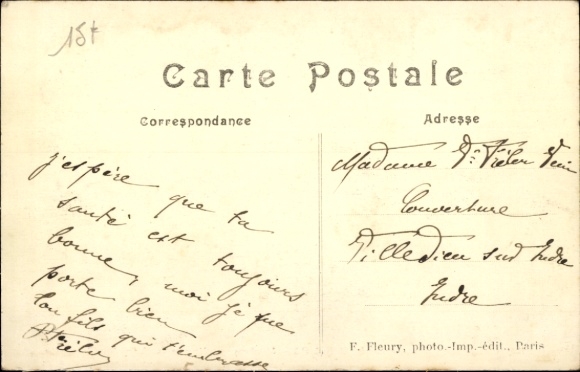 15t
Carte Postale
Correspondance
Adresse
j'espère que ta
santé est toujours
bonne, moi je me
porte bien
ton fils qui t'embrasse
Madame
Couverture
Villedieu sur Indre
Indre
F. Fleury, photo.-Imp.-édit., Paris